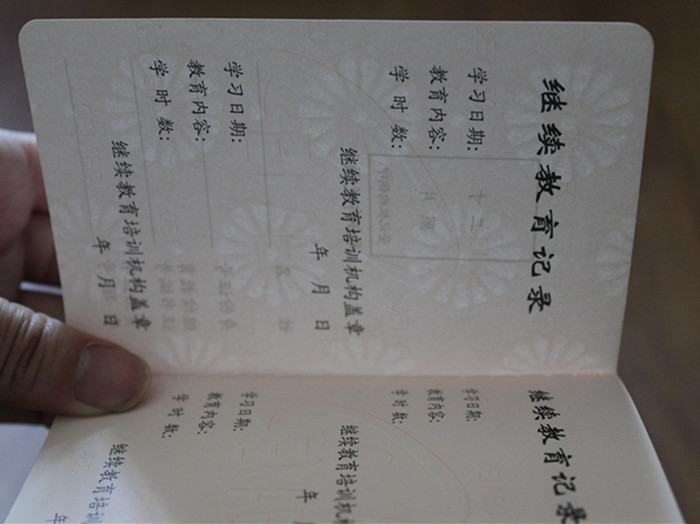 继续教育记录
学习日期:
教育内容:
学 时 数:
继续教育培训机构盖章
年 月 日
学习日期:
教育内容:
学 时 数:
继续教育培训机构盖章
年 月 日
继续教育记录
学习日期:
教育内容:
学 时 数:
继续教育培训机构
年 月
学习日期:
教育内容:
学 时 数:
继续教育培训
年